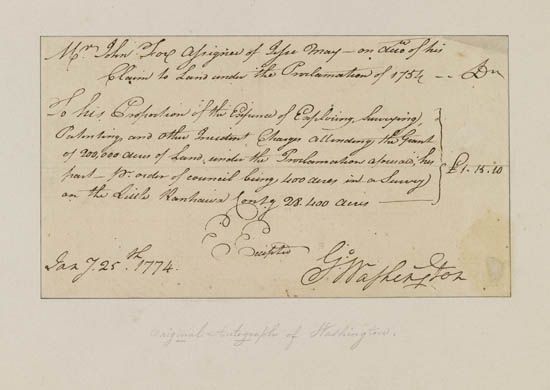 Mr. John Fox Assignee of Jesse May — on Acct. of his
Claim to Land under the Proclamation of 1754 — Dr
To his Proportion of the Expence of Exploring, Surveying,
Patenting, and other Incident Charges attending the Grant
of 200,000 acres of Land, under the Proclamation abovesd; his
part — pr. order of council being 400 acres in a Survey
on the Little Kanhawa Contg. 28.400 acres
£1.15.10
Jany. 25th. 1774.
Go. Washington
Original Autograph of Washington.